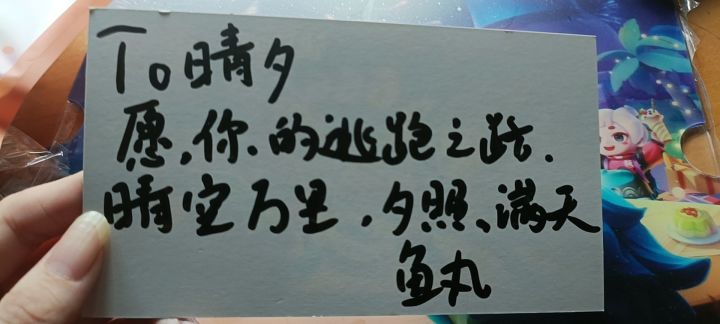 To晴夕
愿,你.的逃跑之路.
晴空万里,夕照、满天
鱼丸